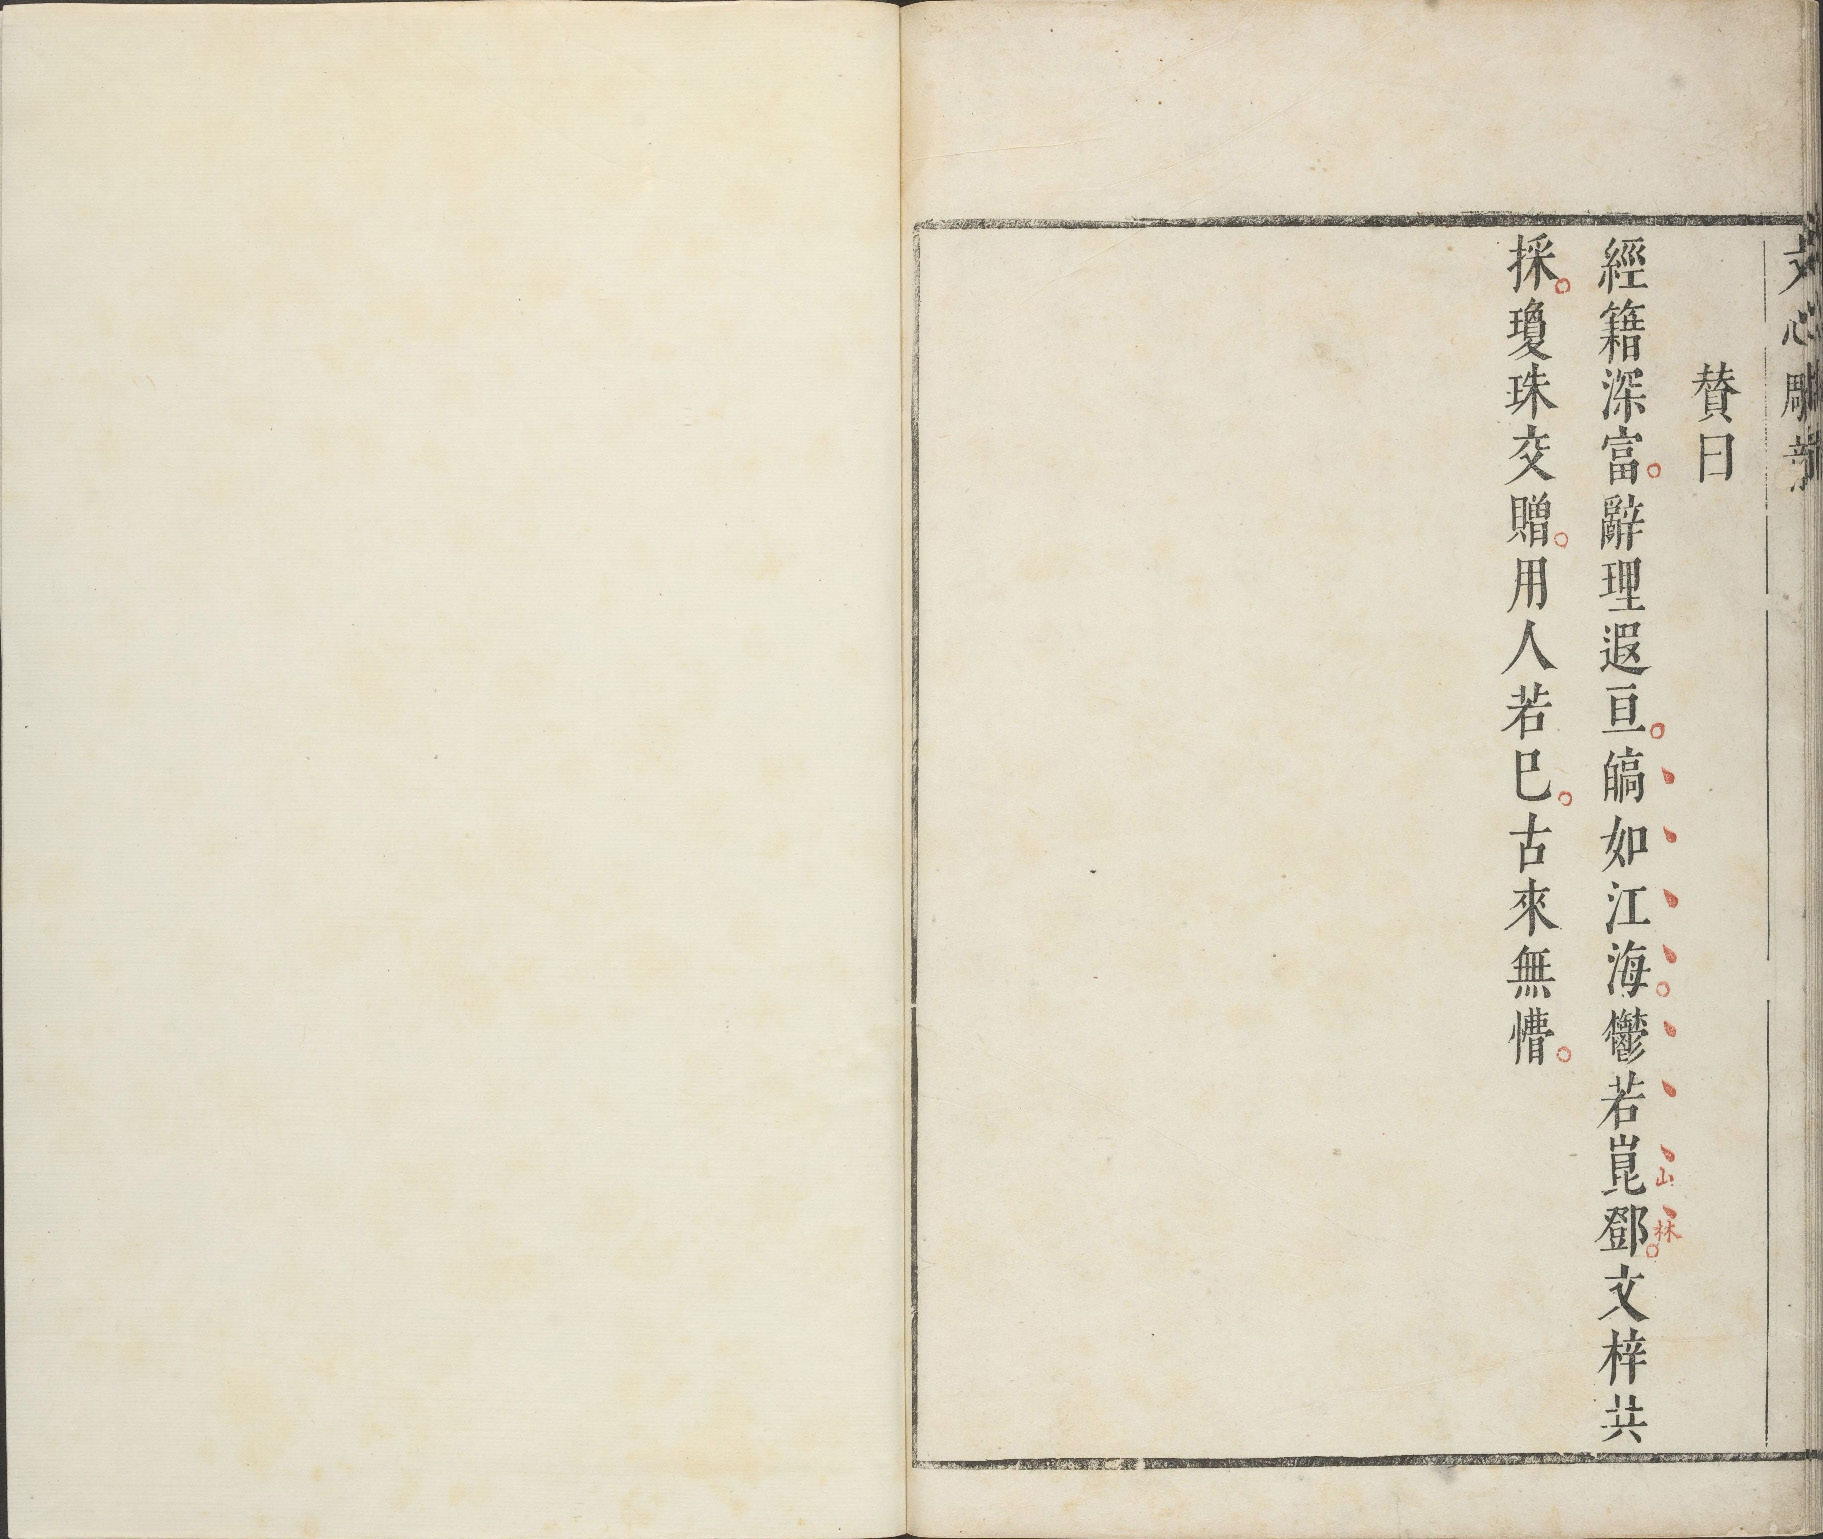 文心雕龍
贊曰
經籍深富。辭理遐亘。皜如江海。鬱若崑鄧。文梓共
採。瓊珠交贈。用人若巳。古來無懵。
山
林